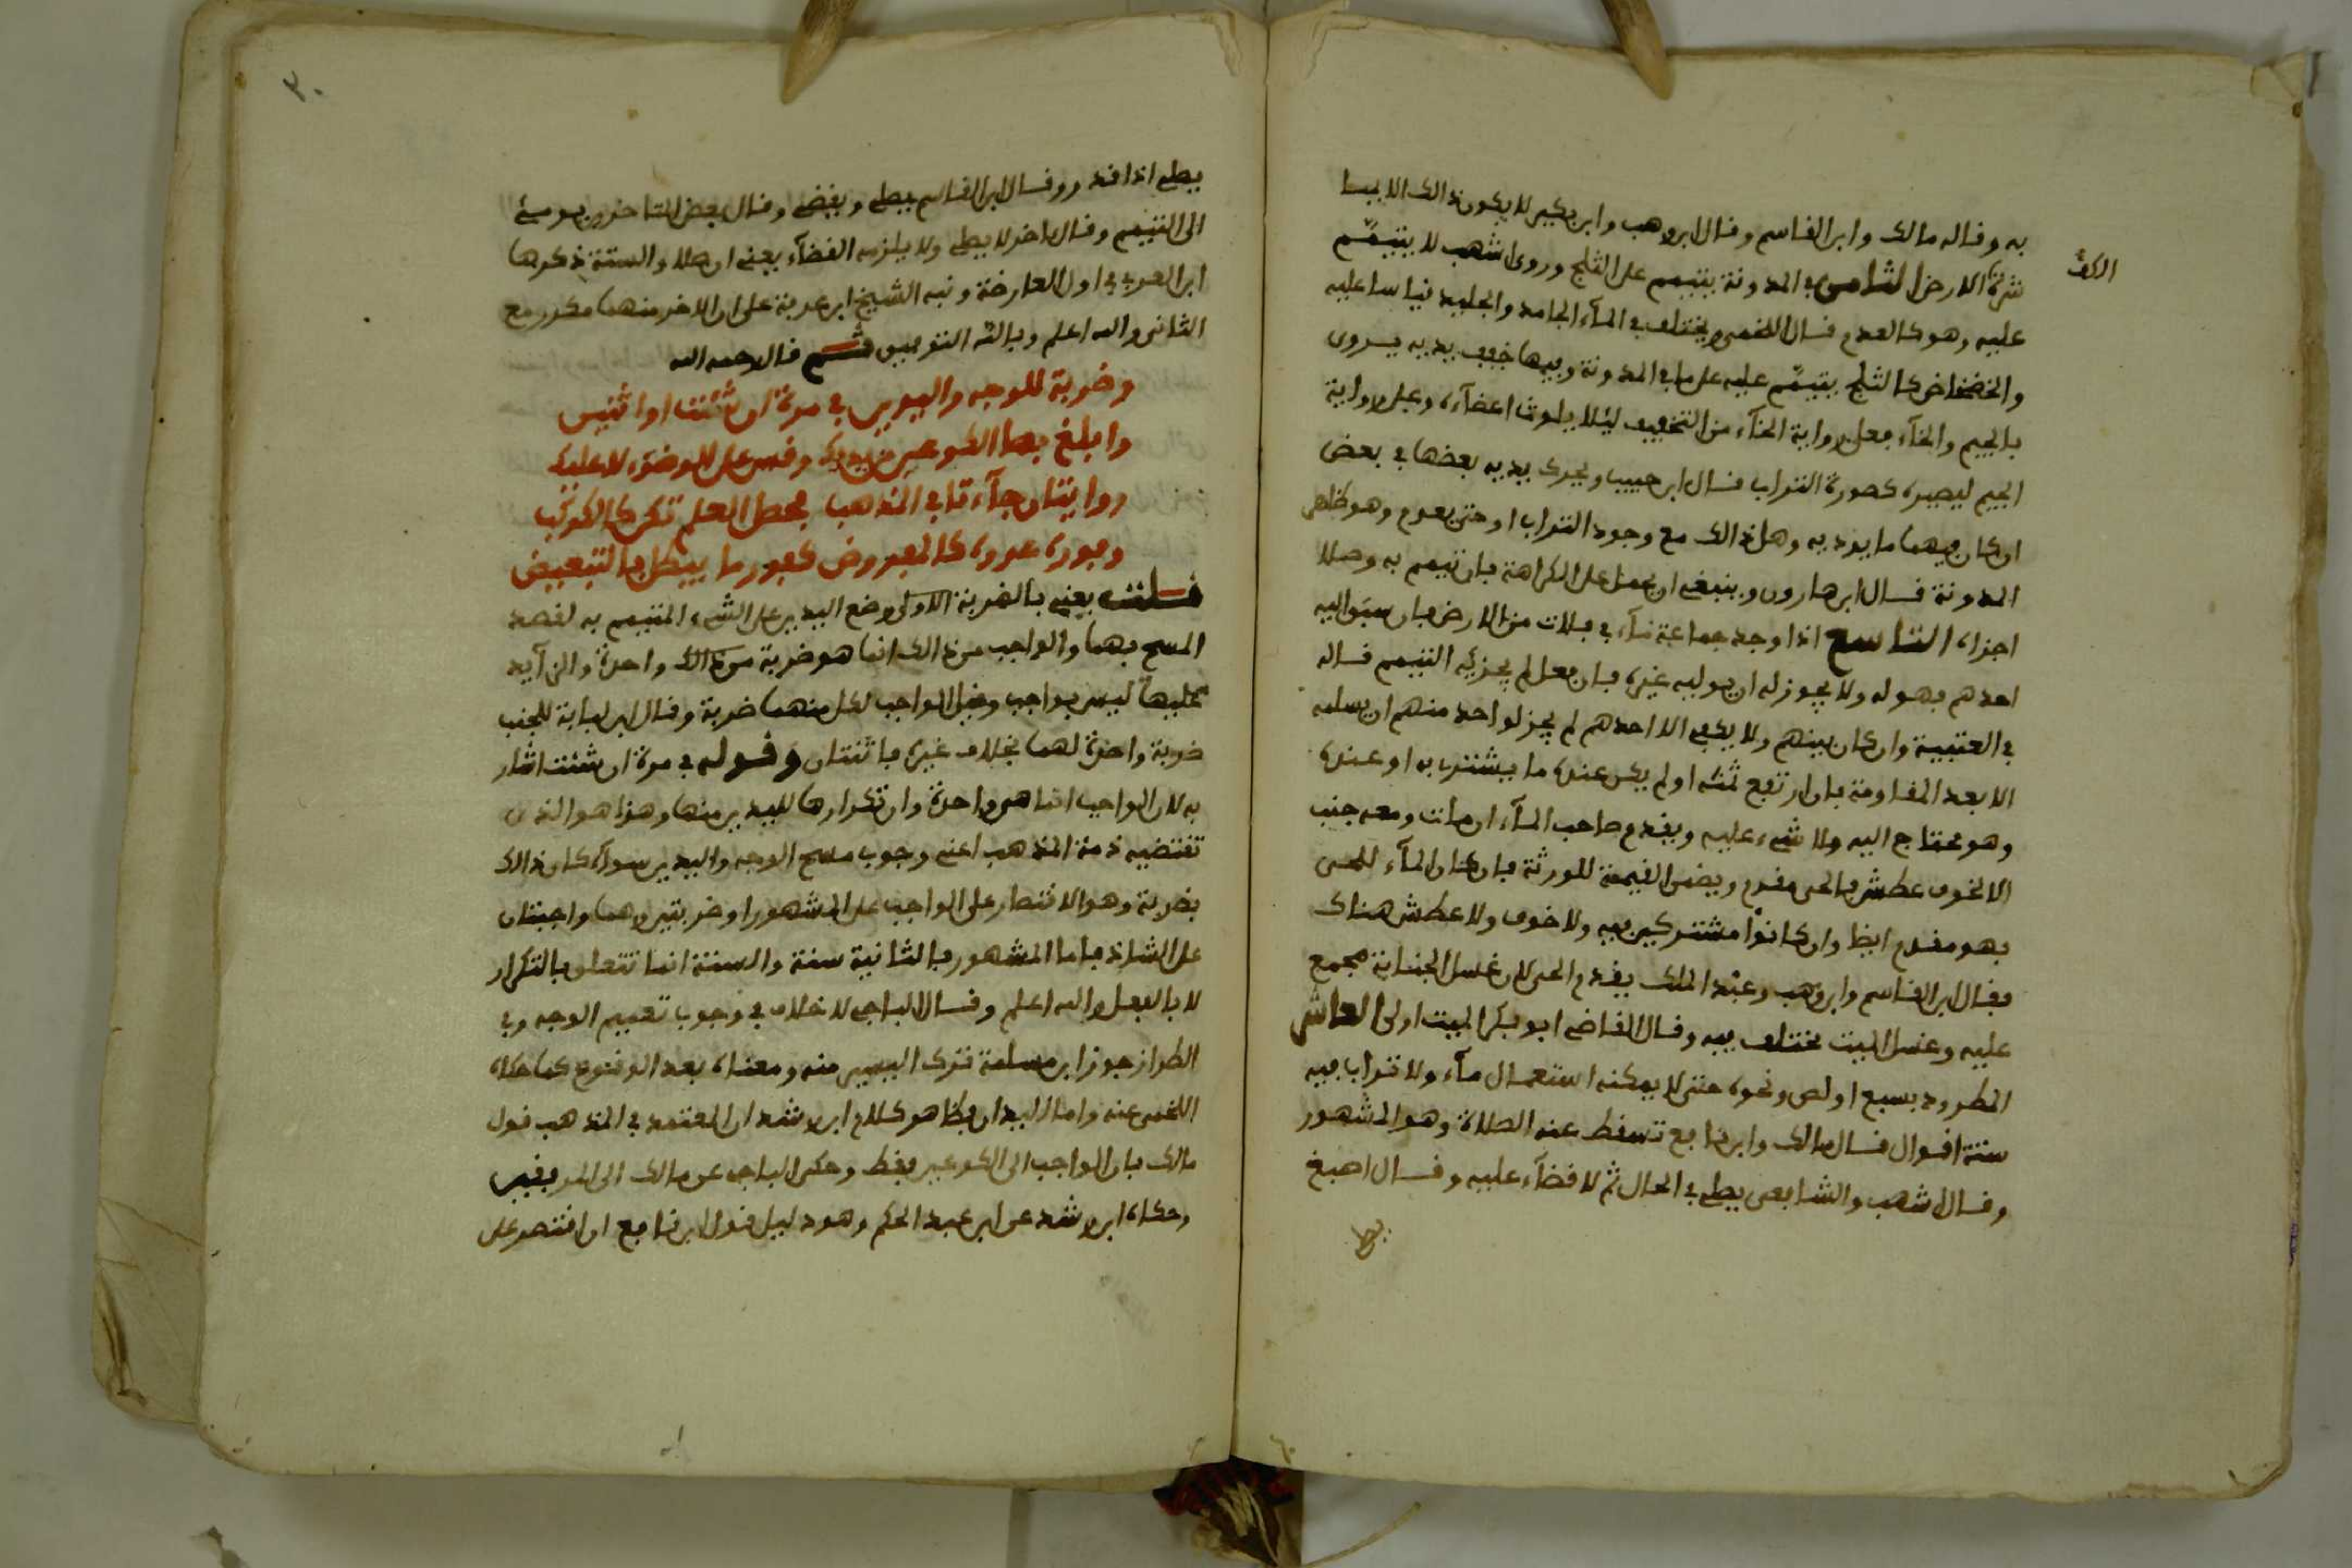 به وقاله مالك وابن القاسم وقال ابن وهب وابن بكير لا يكون ذالك الا بما
شركة الارض الثامن في المدونة يتيمم على الثلج وروى اشهب لا يتيمم
الكف
عليه وهو كالعدم قال اللخمي ويختلف في المآء الجامد والجليد قياسا عليه
والخضخاض كالثلج يتيمم عليه على ما في المدونة وفيها خفف يديه يروى
بالجيم والخآء فعلى رواية الخآء من التخفيف ليلا يلوث اعضآءه وعلى رواية
الجيم ليصيره كصورة التراب قال ابن حبيب ويحرك يديه بعضها في بعض
ان كان فيهما ما يوذيه وهل ذالك مع وجود التراب او حتى يعدم وهو ظاهر
المدونة قال ابن هارون وينبغي ان يحمل على الكراهة فان تيمم به وصلا
اجزاه التاسع اذا وجد جماعة مآء في فلات من الارض فان سبق اليه
احدهم فهو له ولا يجوز له ان يوليه غيره فان فعل لم يجزيه التيمم قاله
في العتبية وان كان بينهم ولا يكفي الا احدهم لم يجز لواحد منهم ان يسلمه
الا بعد المقاومة فان ارتفع ثمنه او لم يكن عنده ما يشتري به او عنده
وهو محتاج اليه ولا شيء عليه ويقدم صاحب المآء ان مات ومعه جنب
الا لخوف عطش فالحي مقدم ويضمن القيمة للورثة فان كان المآء للحي
فهو مقدم ايضا وان كانوا مشتركين فيه ولا خوف ولا عطش هناك
فقال ابن القاسم وابن وهب وعبد الملك يقدم الحي لان غسل الجنابة مجمع
عليه وغسل الميت مختلف فيه وقال القاضي ابو بكر الميت اولى العاشر
المطرود بسبع او لص ونحوه حتى لا يمكنه استعمال مآء ولا تراب فيه
ستة اقوال قال مالك وابن نافع تسقط عنه الصلاة وهو المشهور
وقال اشهب والشافعي يصلي في الحال ثم لا قضآء عليه وقال اصبغ
٣٠
يصلي اذا قدر وقال ابن القاسم يصلي ويقضي وقال بعض المتاخرين يومئ
الى التيمم وقال اخر لا يصلي ولا يلزمه القضآء يعني ان صلا والستة ذكرها
ابن العربي في اول العارضة ونبه الشيخ ابن عرفة على ان الاخر منهما مكرر مع
الثاني والله اعلم وبالله التوفيق ثم قال رحمه الله
وضربة للوجه واليدين في مرة ان شئت او اثنين
وابلغ بها الكوعين من يديك وقس على الوضوء لا عليك
روايتان جآءتا في المذهب محط العلم تكن كالكوكب
وفوره عدوه كالمفروض كفور ما يبطل بالتبعيض
قلت يعني بالضربة الاولى وضع اليدين على الشيء المتيمم به لقصد
المسح بهما والواجب من ذالك انما هو ضربة من ذالك واحدة والزآيد
عليها ليس بواجب وقيل الواجب لكل منهما ضربة وقال ابن لبابة للجنب
ضربة واحدة لهما بخلاف غيره فاثنتان وقوله في مرة ان شئت اشار
به لان الواجب انما هي واحدة وان تكرارها لليدين منها وهذا هو الذي
تقتضيه ذمة المذهب اعني وجوب مسح الوجه واليدين سوآء كان ذالك
بضربة وهو الاقتصار على الواجب على المشهور او ضربتين وهما واجبتان
على الشاذ فاما المشهور فالثانية سنة والسنة انما تتعلق بالتكرار
لا بالفعل والله اعلم وقال الباجي لا خلاف في وجوب تعميم الوجه وفي
الطراز جوز ابن مسلمة ترك اليسير منه ومعناه بعد الوقوع كما حكاه
اللخمي عنه واما اليدان فظاهر كلام ابن رشد ان المعتمد في المذهب قول
مالك بان الواجب الى الكوعين فقط وحكى الباجي عن مالك الى المرفقين
وحكاه ابن رشد عن ابن عبد الحكم وهو دليل قول ابن نافع ان اقتصر على